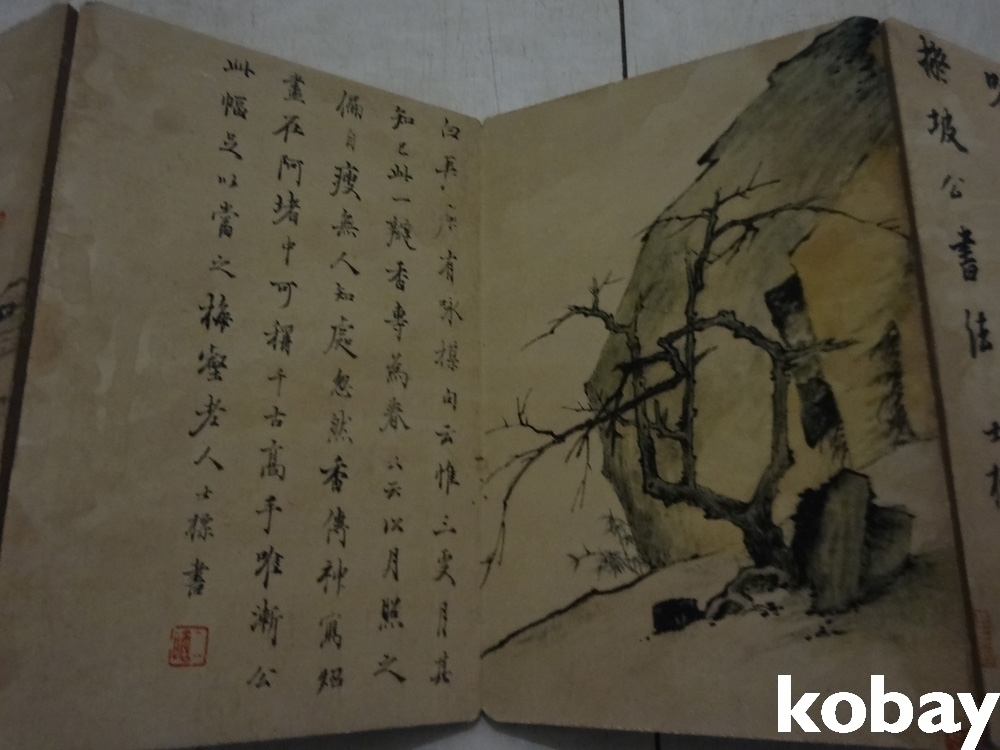 坡公書法
有咏楳句云惟三更月其
知己此一瓣香專為春云以月照之
偏自瘦無人知處忽然香傳神寫炤
盡在阿堵中可稱千古高手唯漸公
此幅足以當之梅壑老人士標書
kobay